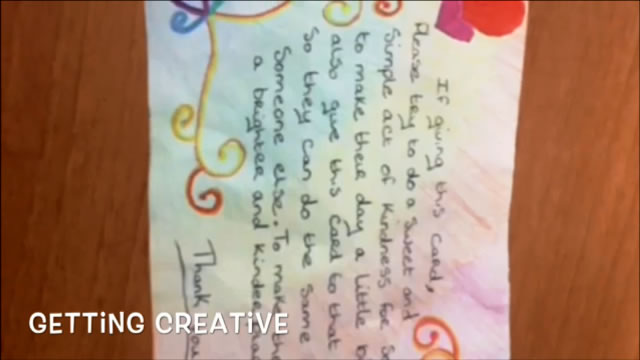 If giving this card,
Please try to do a sweet and
Simple act of Kindness for
to make their day a little
also give this card to that
So they can do the same
Someone else. To make
a brighter and Kinder
Thank you
GETTiNG CREATiVE